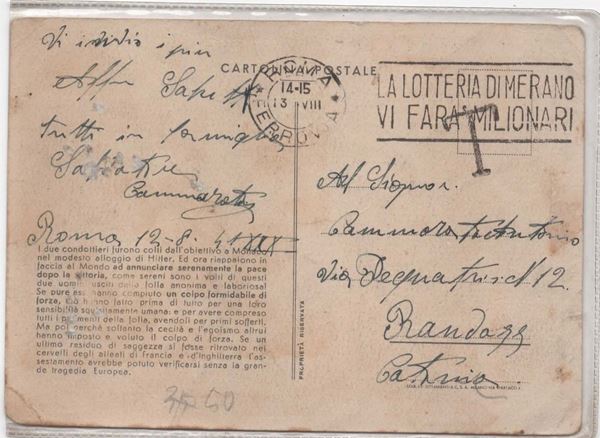 Vi invio i più
Aff. Saluti
tutti in famiglia
Salvatore
Cammarata
Roma 12-8-41 XIX
I due condottieri furono colti dall'obiettivo a Monaco
nel modesto alloggio di Hitler. Ed ora riappaiono in
faccia al Mondo ad annunciare serenamente la pace
dopo la vittoria, come sereni sono i volti di questi
due uomini usciti dalla folla anonima e laboriosa!
Se pure essi hanno compiuto un colpo formidabile di
forza, lo hanno fatto prima di tutto per una loro
sensibilità squisitamente umana: e per avere compreso
tutti i patimenti della folla, avendoli per primi sofferti.
Ma poi perché soltanto la cecità e l'egoismo altrui
hanno imposto e voluto il colpo di forza. Se un
ultimo residuo di saggezza si fosse ritrovato nei
cervelli degli alleati di Francia e d'Inghilterra l'as-
sestamento avrebbe potuto verificarsi senza la gran-
de tragedia Europea.
CARTOLINA POSTALE
ROMA
14-15
13 VIII
FERROVIA
LA LOTTERIA DI MERANO
VI FARÀ MILIONARI
T
PROPRIETÀ RISERVATA
Al Signor.
Cammarata Antonio
Via 12.
Randazzo
Catania
50